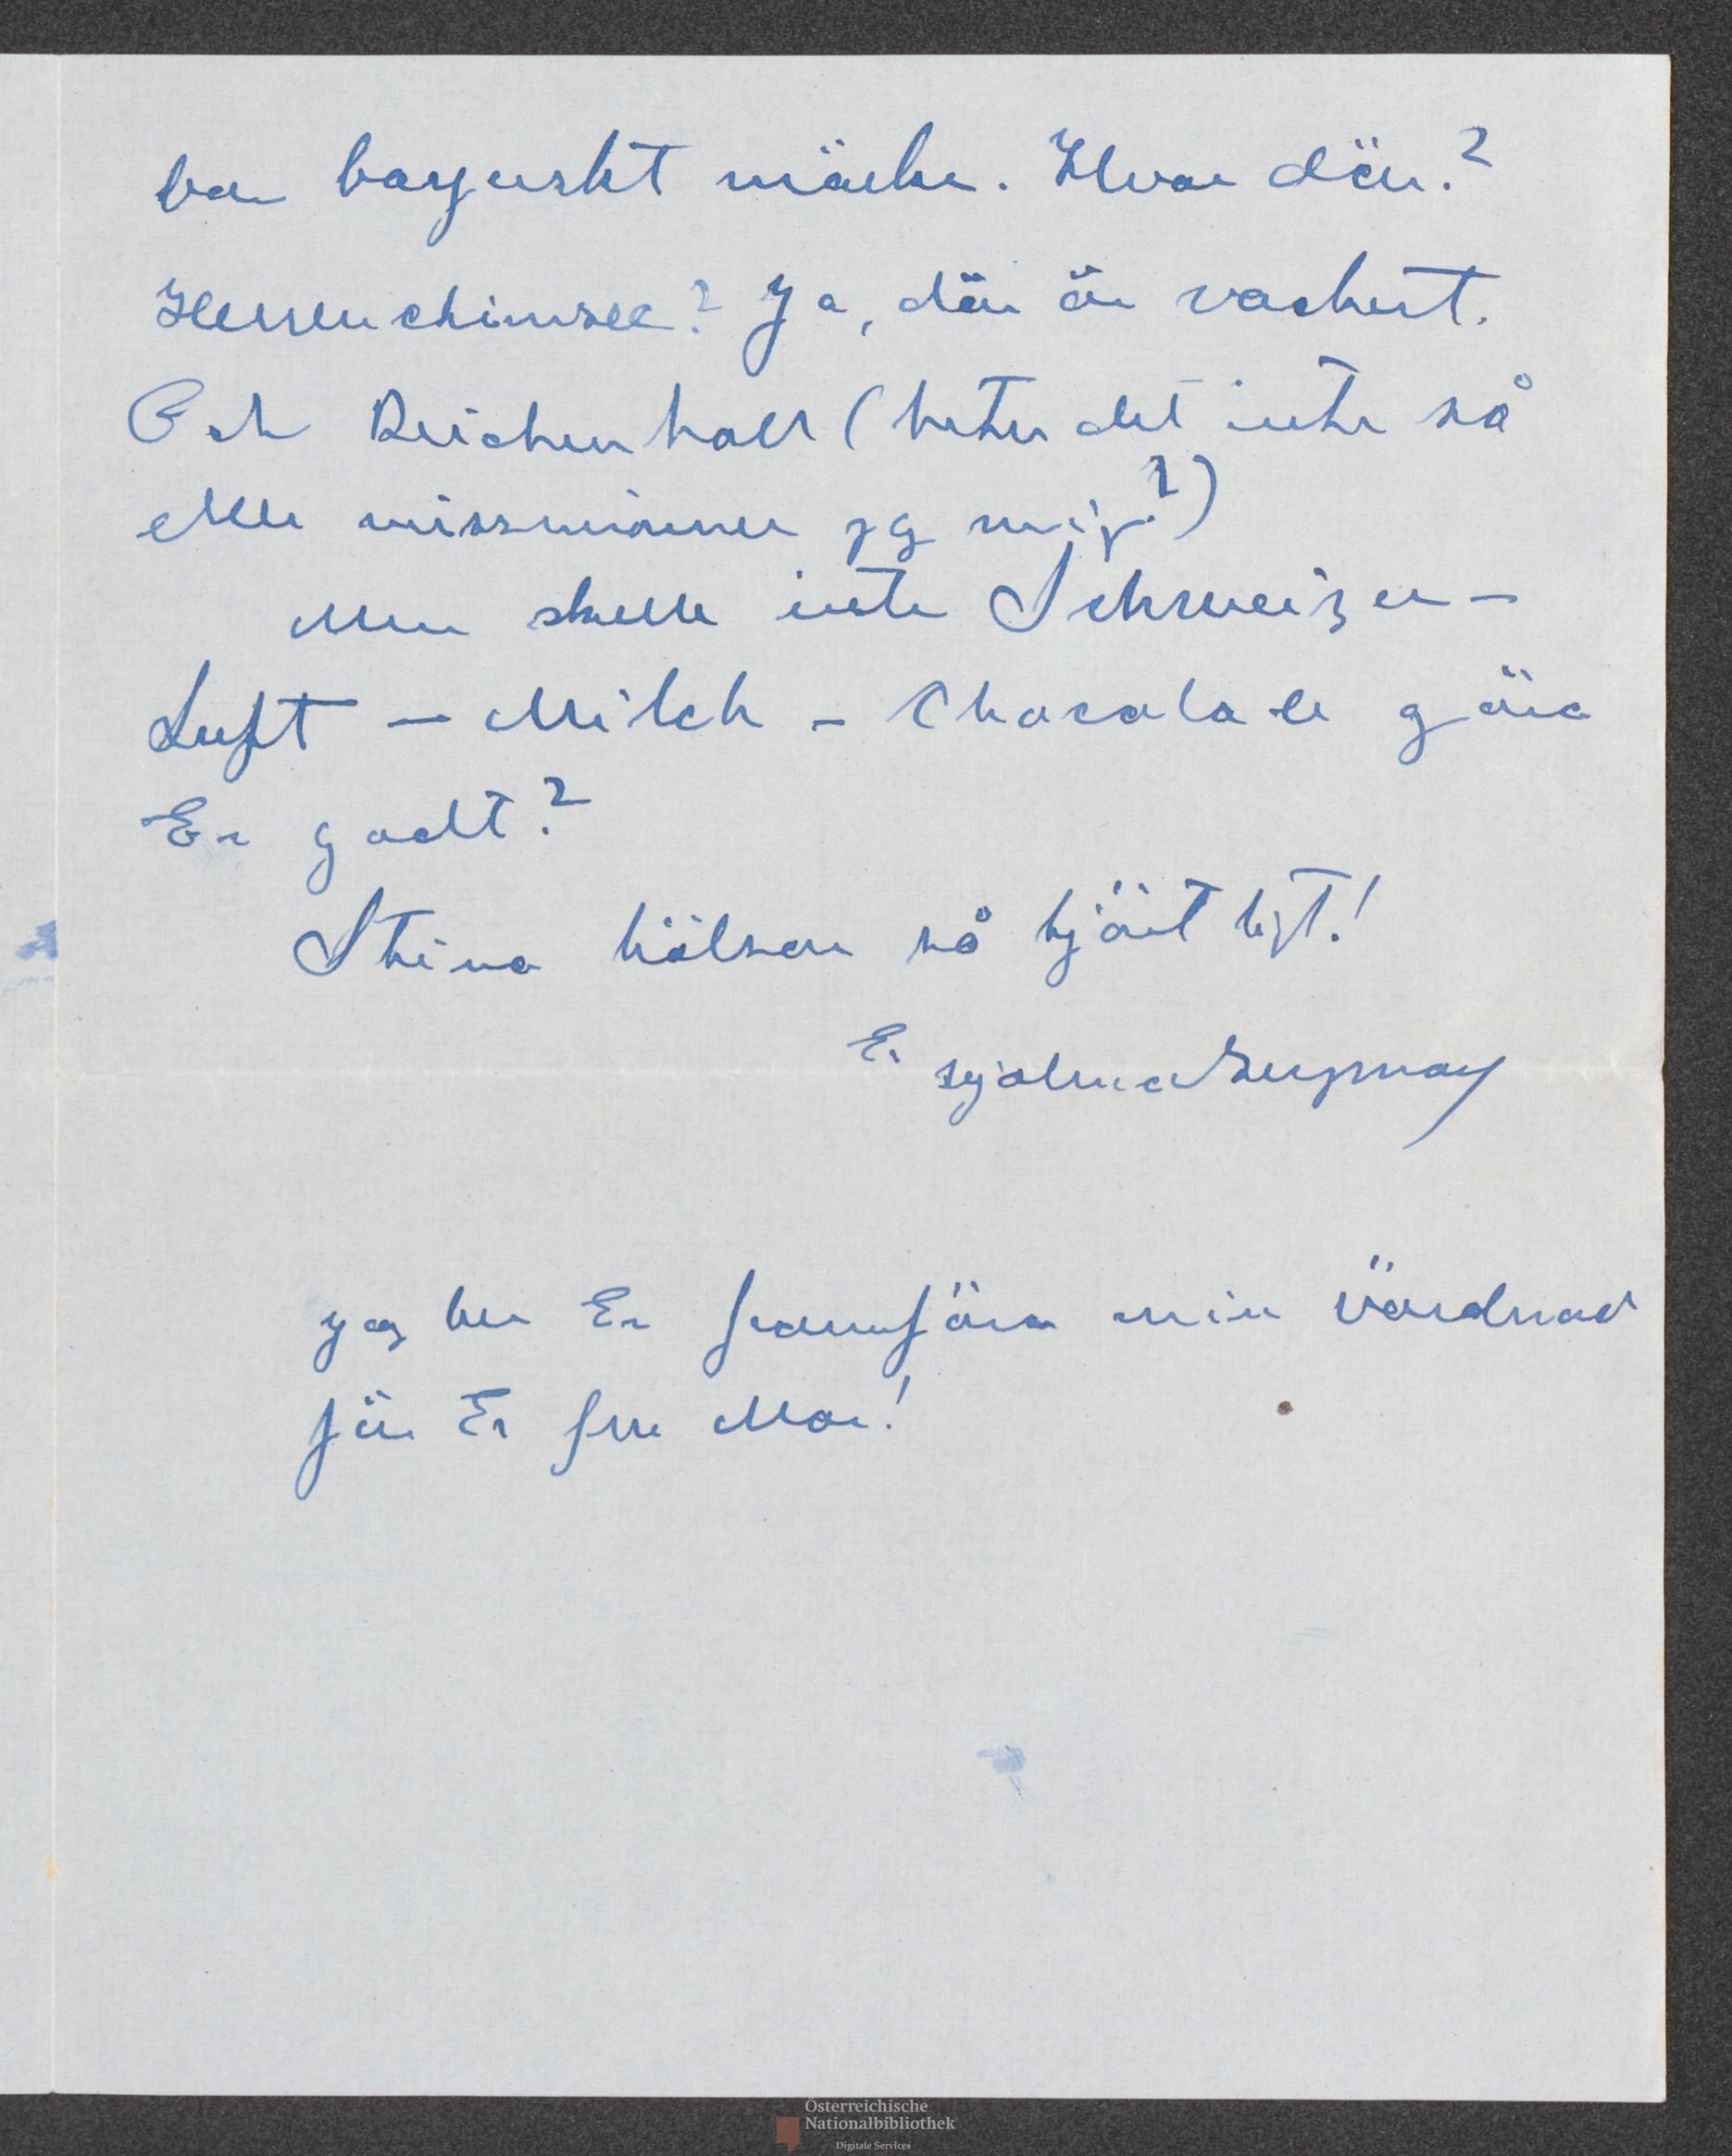 bar bayerskt märke. Hvar där?
Herrenchimsee? Ja, där är vackert.
Och Reichenhall (heter det inte så
eller missminner jg mig?)
Men skulle inte Schweizer-
Luft – Milch – Chocolade göra
Er godt?
Stina hälsar så hjärtligt!
Er
jag ber Er framföra min vördnad
för Er fru Mor!
Österreichische
Nationalbibliothek
Digitale Services